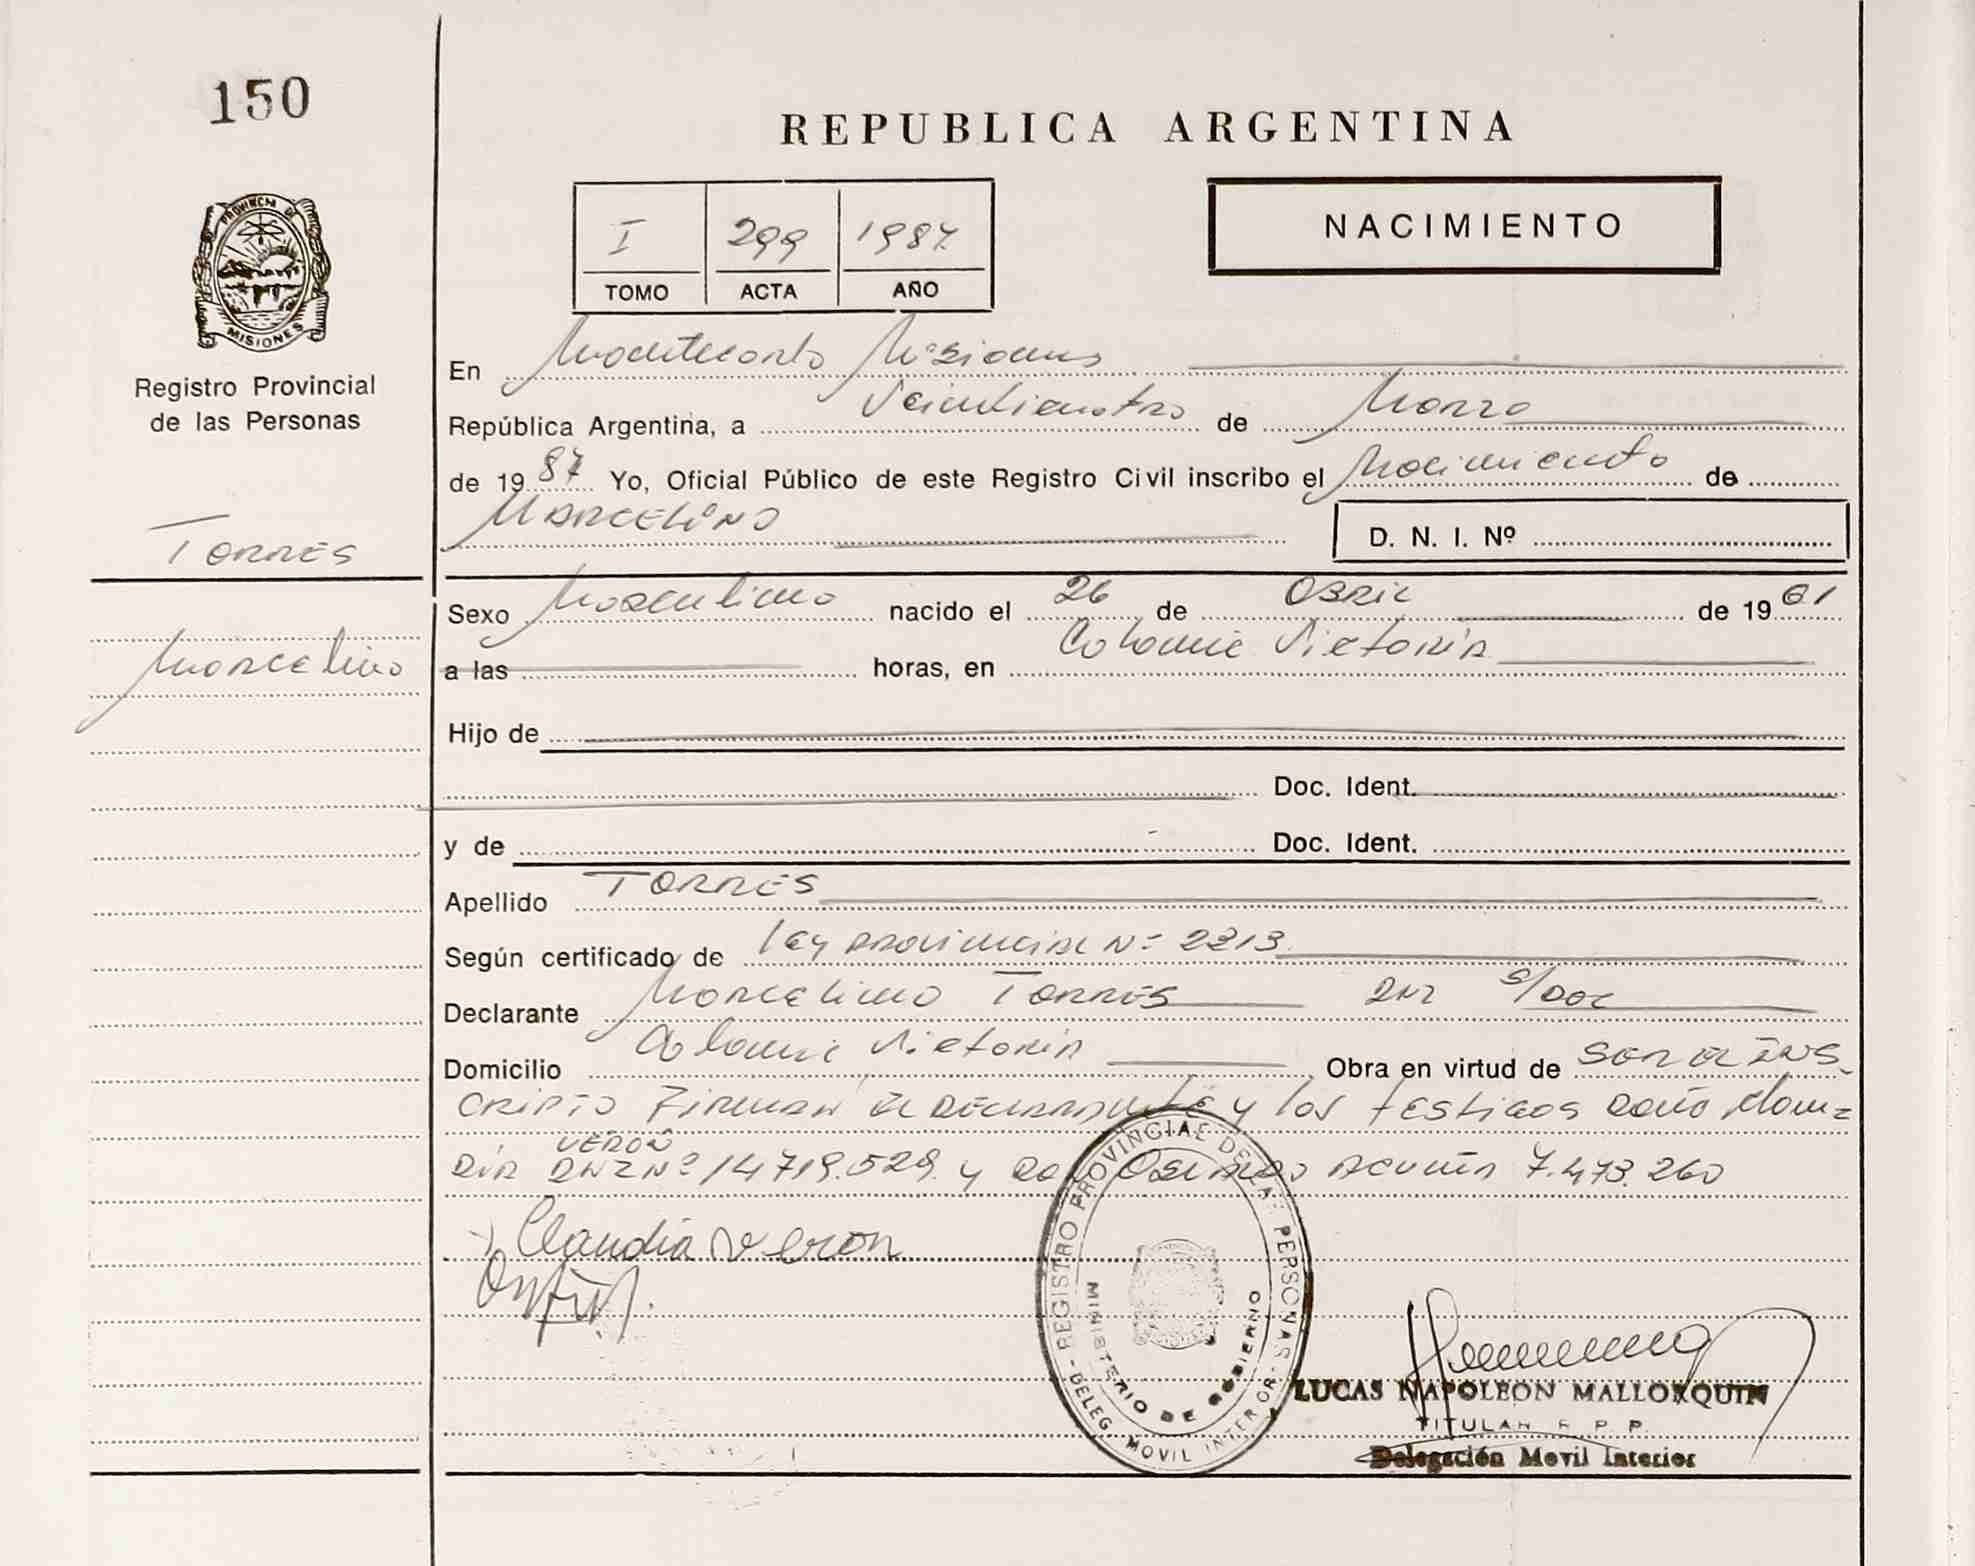 150
REPUBLICA ARGENTINA
NACIMIENTO
I 299 1987
TOMO ACTA AÑO
PROVINCIA DE
MISIONES
Registro Provincial
de las Personas
En Montecarlo Misiones
República Argentina, a Veinticuatro de Marzo
de 1987 Yo, Oficial Público de este Registro Civil inscribo el Nacimiento de
MARCELINO
D. N. I. Nº
TORRES
Marcelino
Sexo Masculino nacido el 26 de ABRIL de 1961
a las horas, en Colonia Victoria
Hijo de
Doc. Ident.
y de Doc. Ident.
Apellido TORRES
Según certificado de Ley provincial Nº 2213
Declarante Marcelino TORRES DNI S/DOC
Domicilio Colonia Victoria Obra en virtud de SER EL INS-
CRIPTO FIRMAN EL DECLARANTE y los testigos
VERON
DNI Nº 14719.529 y ACUÑA 7.473.260
Claudia Veron
REGISTRO PROVINCIAL DE LAS PERSONAS
DELEG. MOVIL INTERIOR
MINISTERIO DE GOBIERNO
LUCAS NAPOLEON MALLORQUIN
TITULAR R. P. P.
Delegación Movil Interior